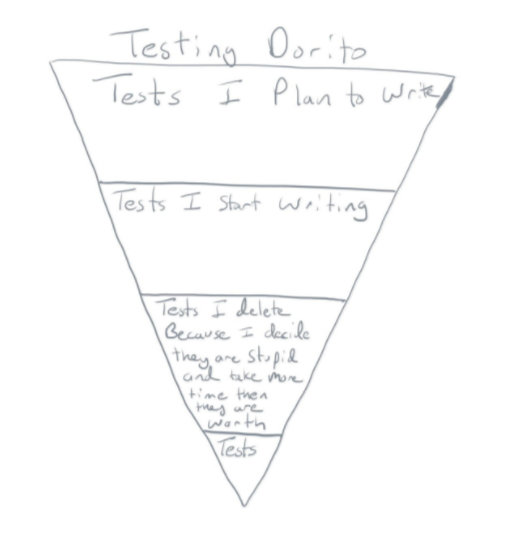 Testing Dorito
Tests I Plan to Write
Tests I Start Writing
Tests I delete
Because I decide
they are stupid
and take more
time then
they are
worth
Tests